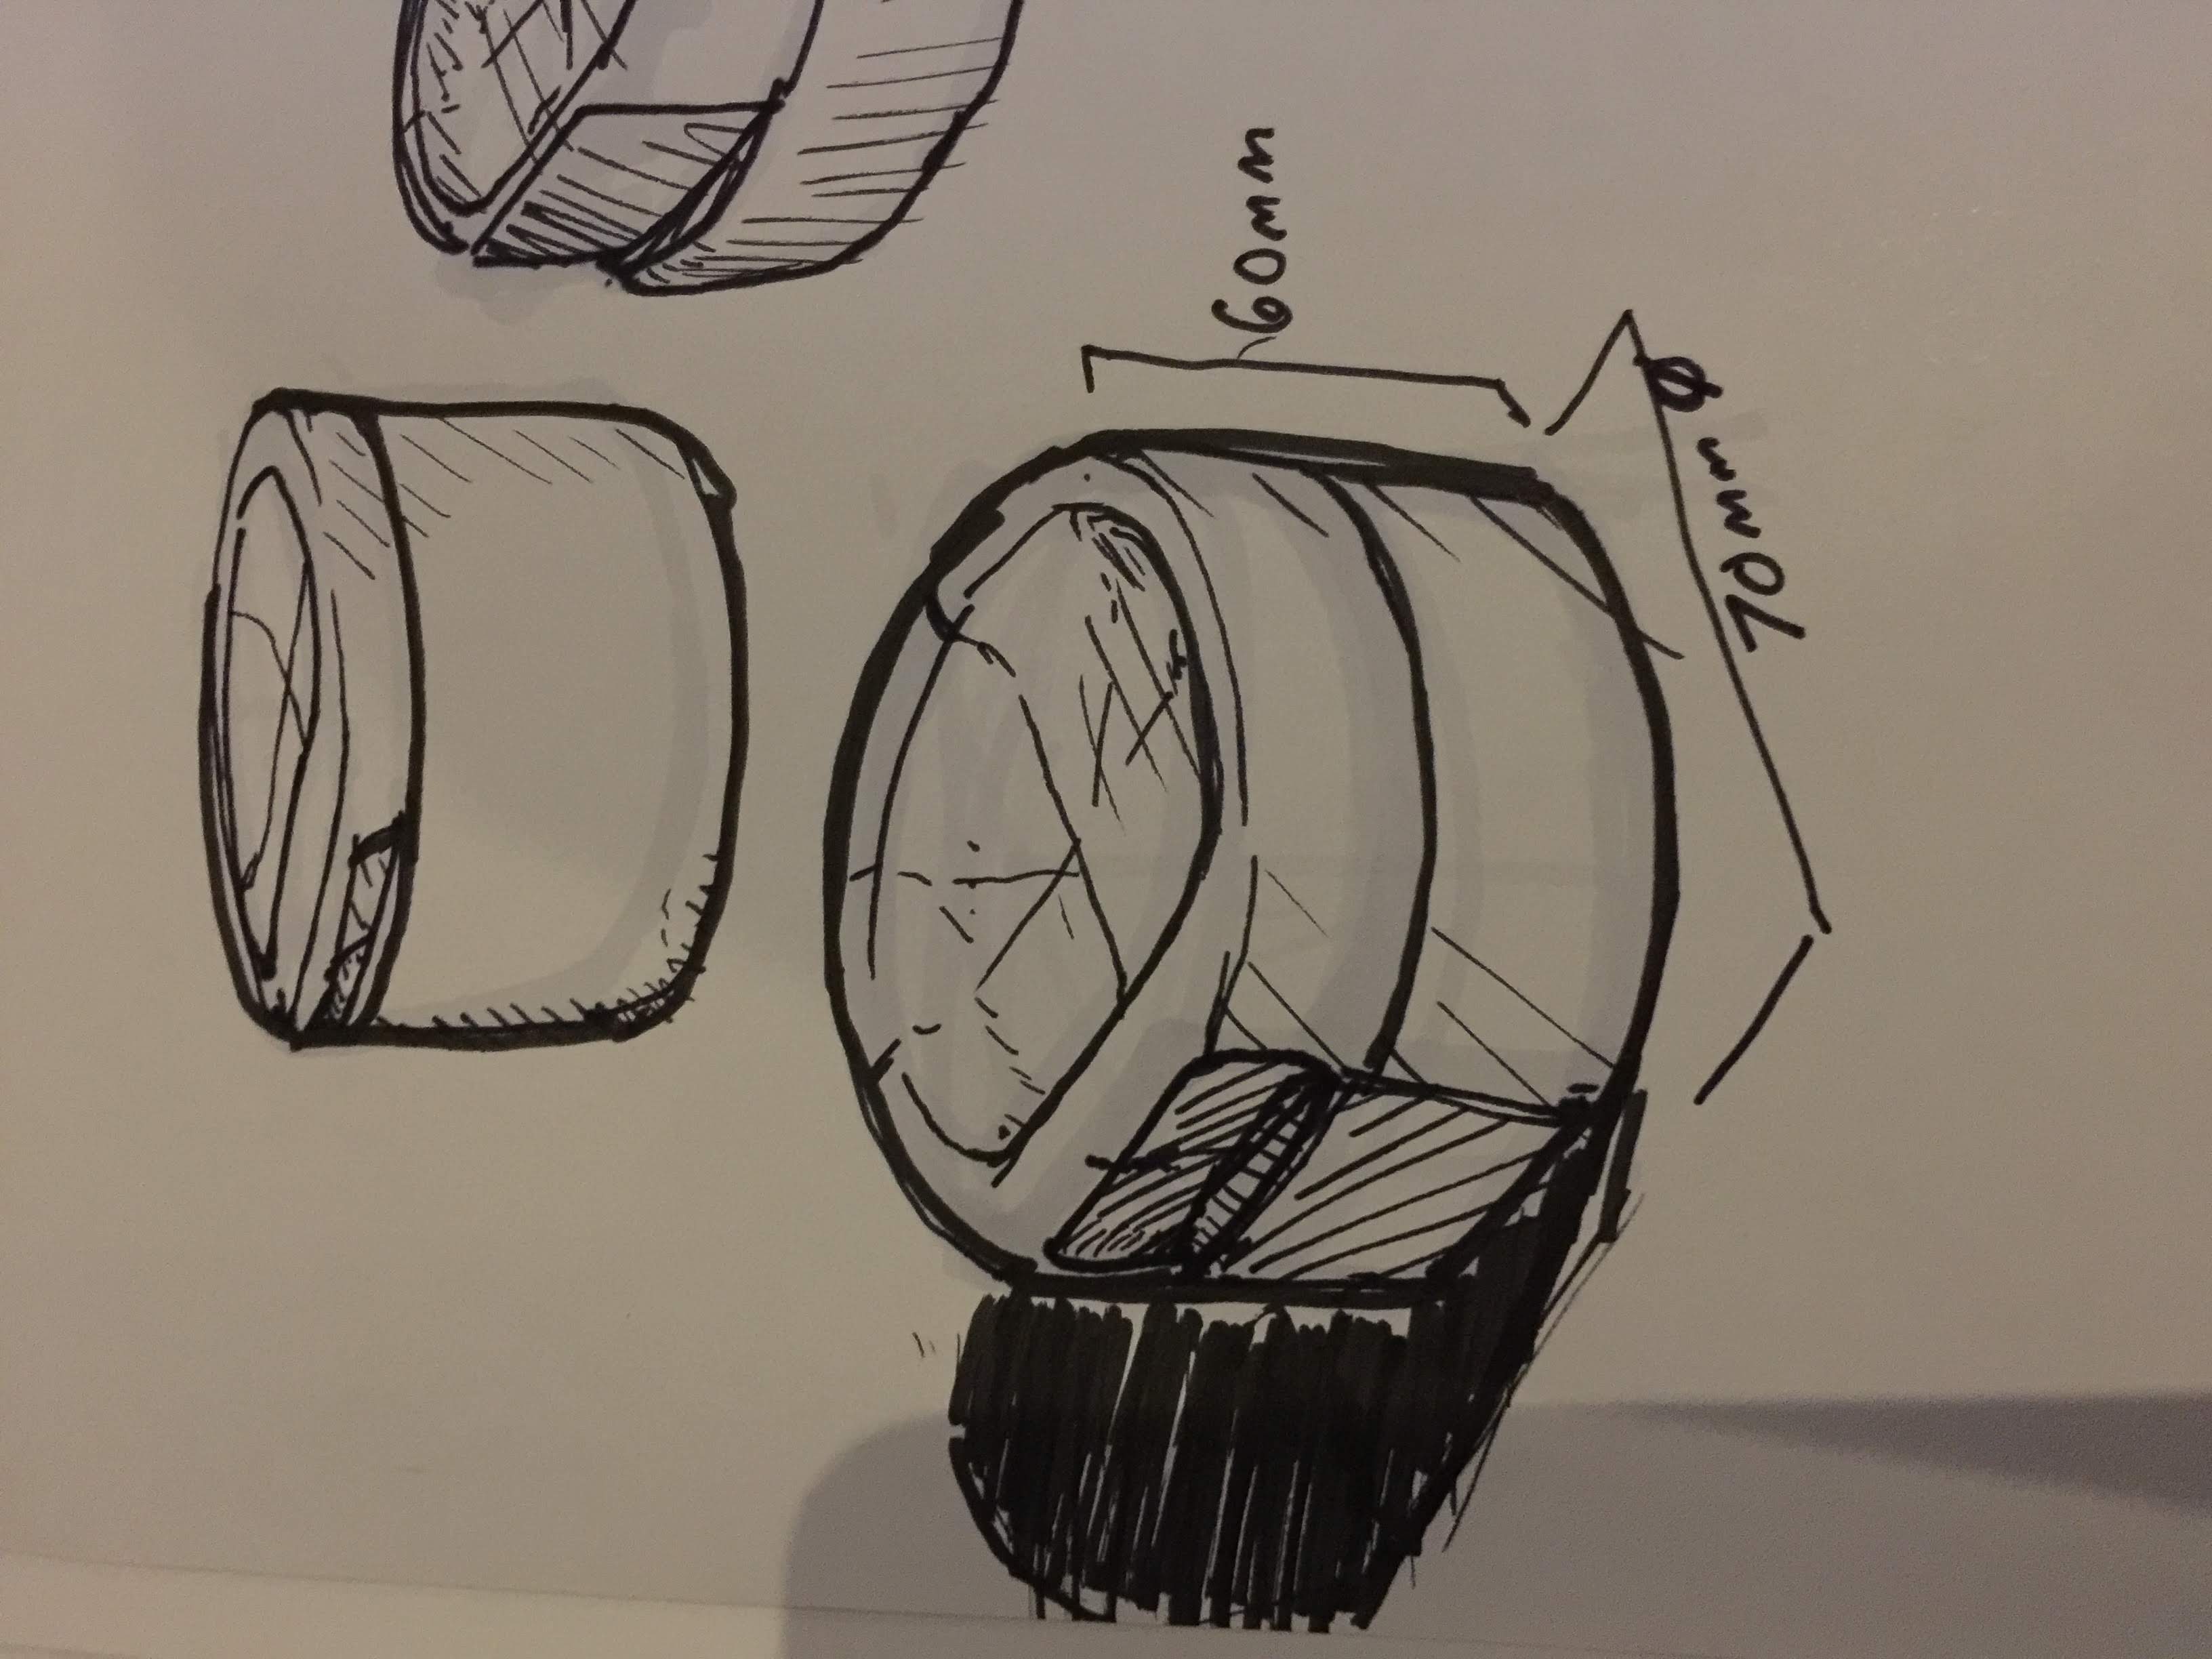 60mm
70mm Ø